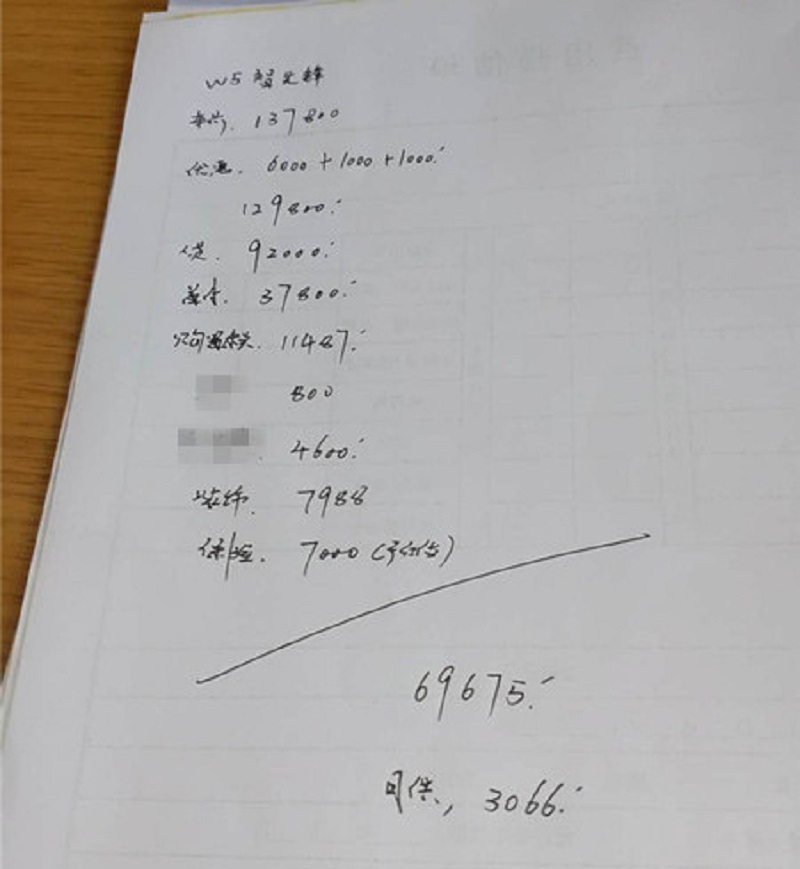 W5 智先锋
车价. 137800
优惠. 6000+1000+1000.
129800.
贷. 92000.
首付. 37800.
购置税. 11487.
800
4600.
装饰. 7988
保险. 7000 (预估)
69675.
月供, 3066.